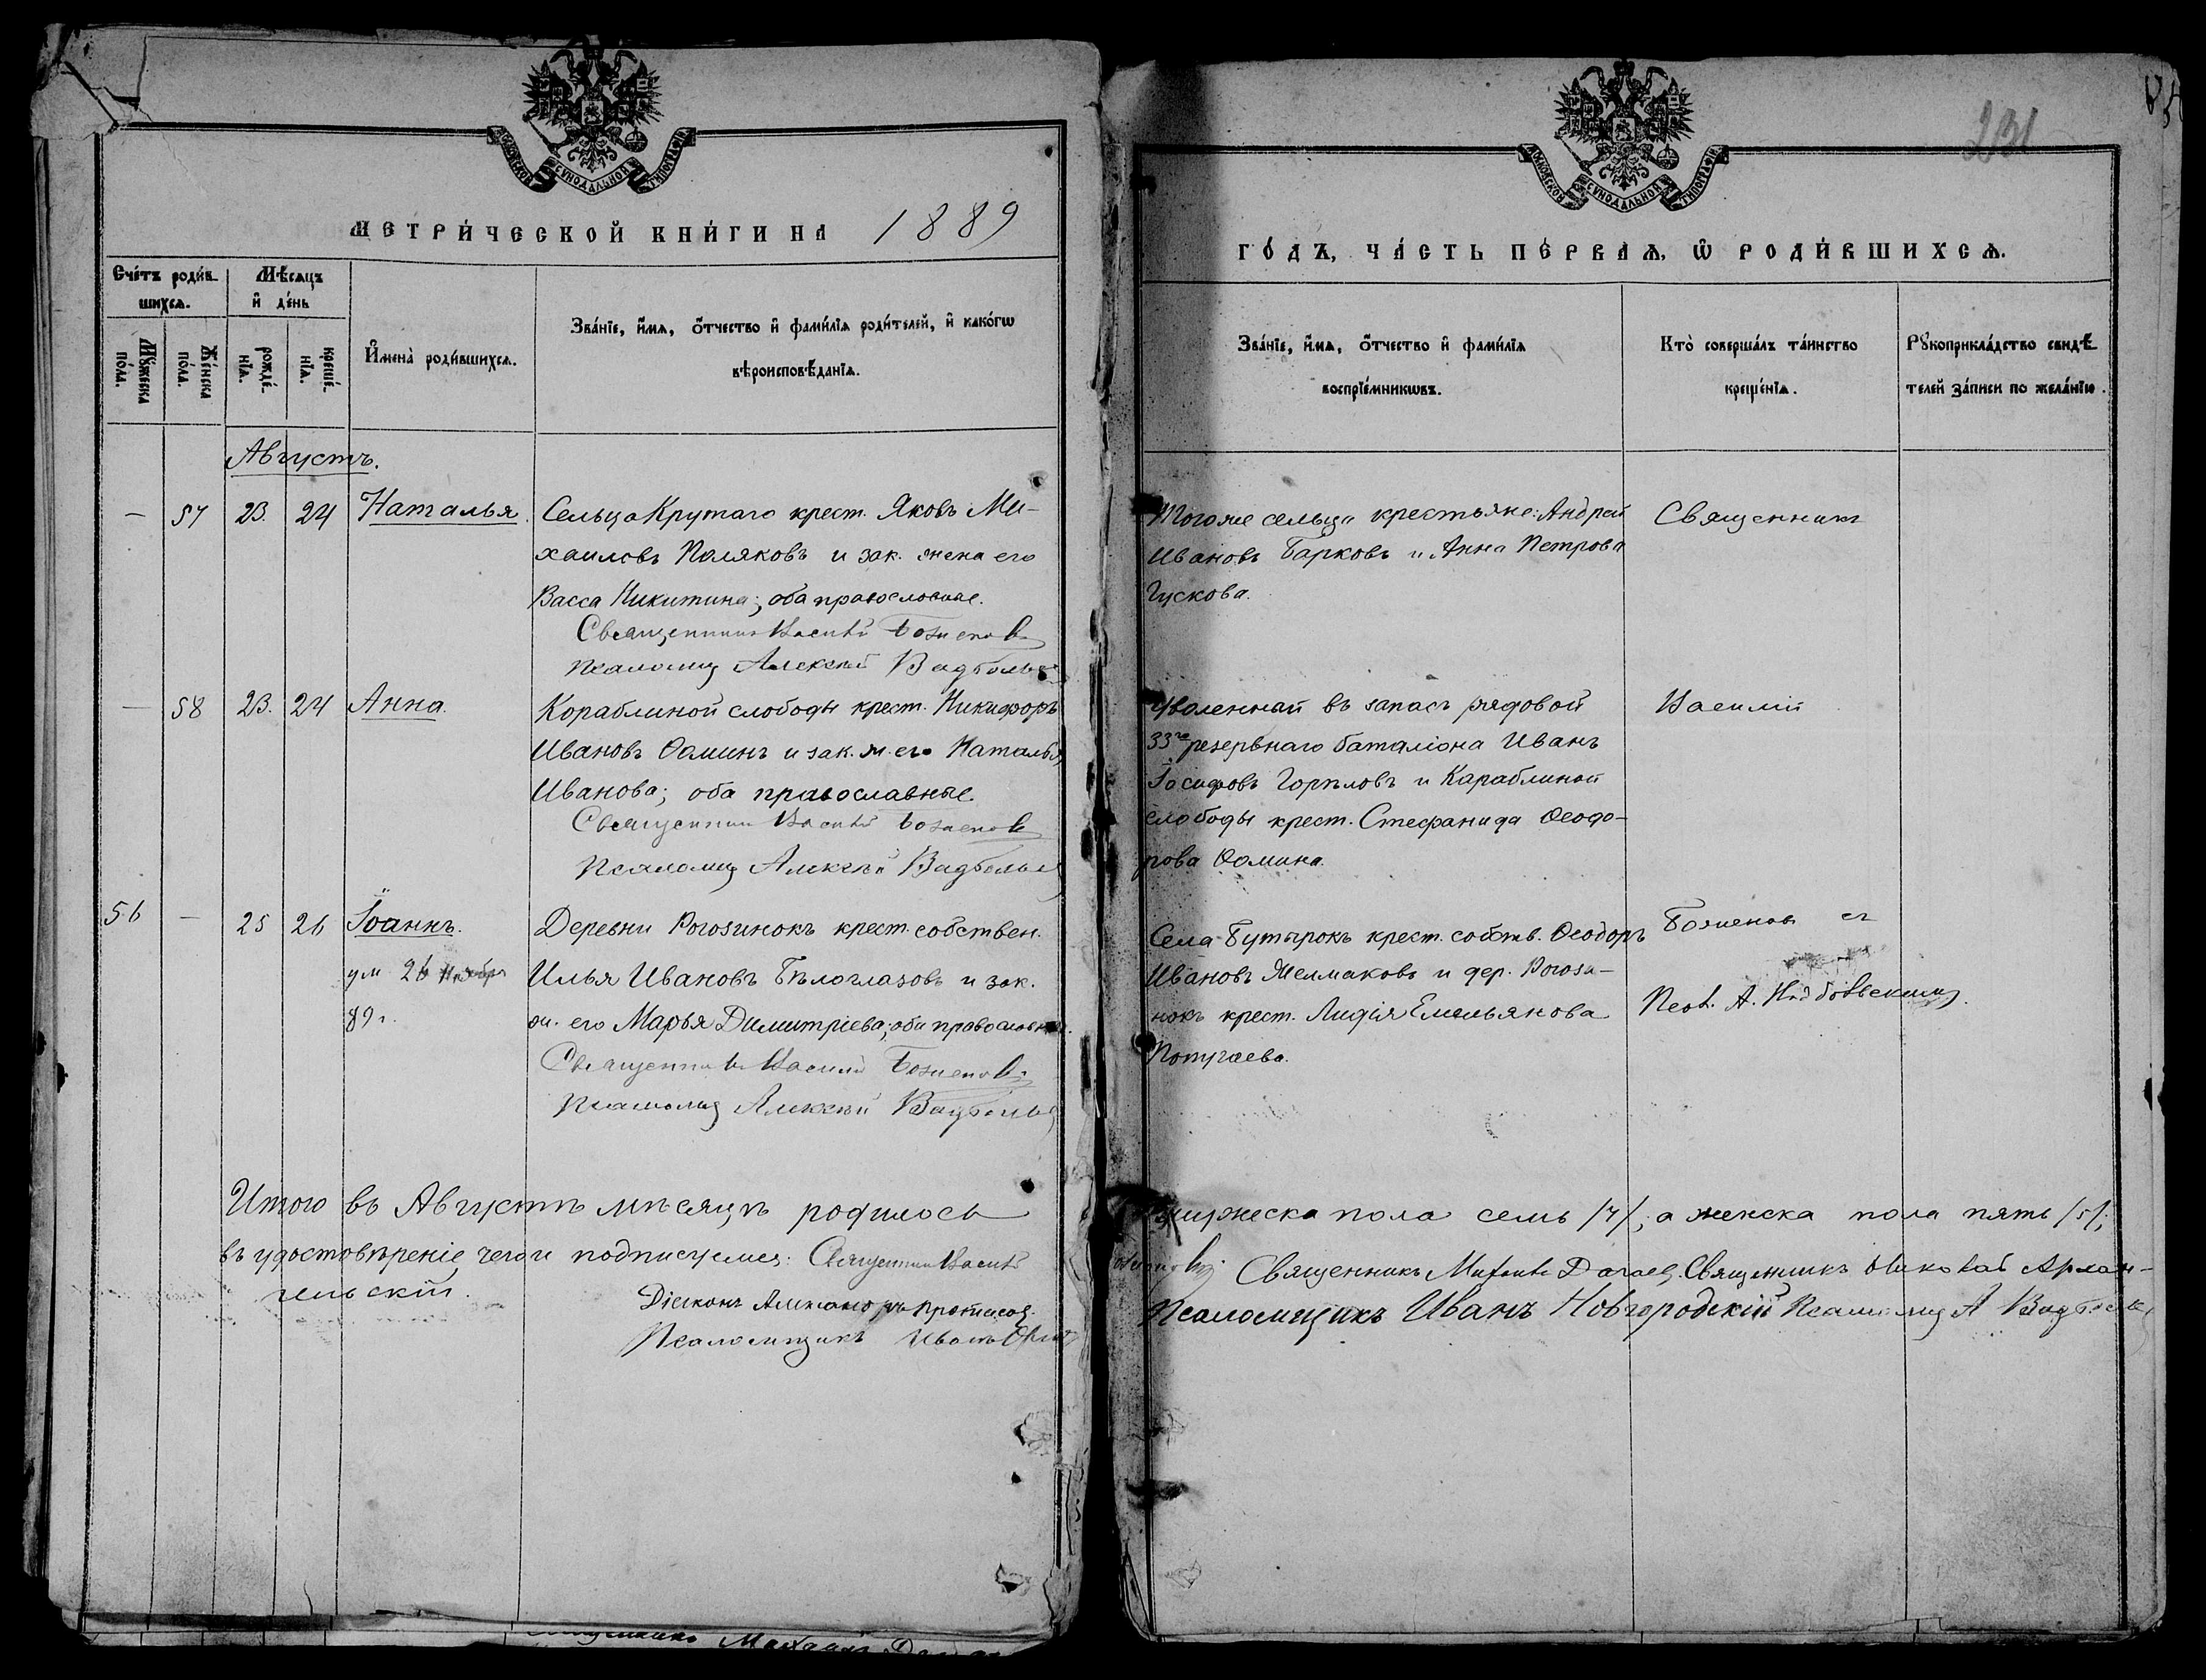 МОСКОВСКОЙ СѴНОДАЛЬНОЙ ТИПОГРАФІИ
МЕТРИ́ЧЕСКОЙ КНИ́ГИ НА 1889
Сче́тъ роди́в-
шихсѧ.
Мѣ́сѧцъ
и҆ де́нь
Мꙋ́жеска
по́ла.
Же́нска
по́ла.
рожде́-
нїѧ.
креще́-
нїѧ.
И҆мена̀ роди́вшихсѧ.
Зва́нїе, и҆́мѧ, ѻ҆́тчество и҆ фами́лїѧ роди́телей, и҆ како́гѡ
вѣроисповѣ́данїѧ.
Августъ.
— 57 23. 24 Наталья.
Сельца Крутаго крест. Яковъ Ми-
хаиловъ Поляковъ и зак. жена его
Васса Никитина; оба православные.
Священникъ Василій Боженовъ
Псаломщ Алексѣй
— 58 23. 24 Анна.
Кораблиной слободы крест. Никифоръ
Ивановъ Ѳоминъ и зак. ж. его Наталья
Иванова; оба православные.
Священникъ Василій Боженовъ
Псаломщ Алексѣй
56 — 25 26 Іоаннъ.
ум 26 Ноября
89 г.
Деревни Рогозинокъ крест. собствен.
Илья Ивановъ Бѣлоглазовъ и зак.
ж. его Марья Димитріева; оба православн.
Священникъ Василій Боженовъ
Псаломщ Алексѣй
Итого въ Августѣ мѣсяцѣ родилось
въ удостовѣреніе чего и подписуемся: Священникъ Василій
гельскій.
Діаконъ Александръ Протасов
Псаломщикъ Иванъ
231
МОСКОВСКОЙ СѴНОДАЛЬНОЙ ТИПОГРАФІИ
ГО́ДЪ, ЧА́СТЬ ПЕ́РВАѦ, Ѡ҆ РОДИ́ВШИХСѦ.
Зва́нїе, и҆́мѧ, ѻ҆́тчество и҆ фами́лїѧ
воспрїе́мникѡвъ.
Кто̀ соверша́лъ та́инство
креще́нїѧ.
Рꙋкоприкла́дство свидѣ́-
телей за́писи по жела́нїю.
Тогоже сельца крестьяне: Андрей
Ивановъ Барковъ и Анна Петрова
Гускова.
Священникъ
Уволенный въ запасъ рядовой
33го резервнаго баталіона Иванъ
Іосифовъ Горѣловъ и Караблиной
слободы крест. Стефанида Ѳеодо-
рова Ѳомина.
Василій
Села Бутырокъ крест. собств. Ѳеодоръ
Ивановъ Желмаковъ и дер. Рогози-
нокъ крест. Лидія Емельянова
Попугаева.
Боженовъ съ
Псал. А.
мужеска пола семь /7/; а женска пола пять /5/;
Священникъ Священникъ Николай Архан-
Псаломщикъ Иванъ Новгородскій Псаломщ А